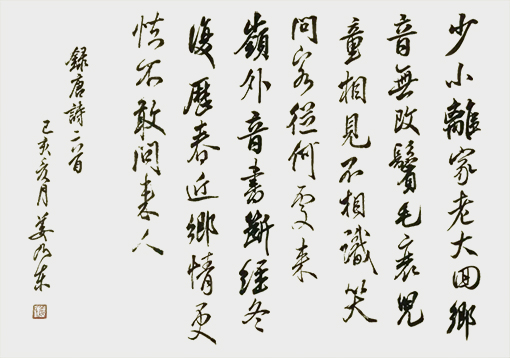 少小離家老大回鄉
音無改鬢毛衰兒
童相見不相識笑
問客從何處來
嶺外音書斷經冬
復歷春近鄉情更
怯不敢問來人
錄唐詩二首
己亥亥月姜乃東